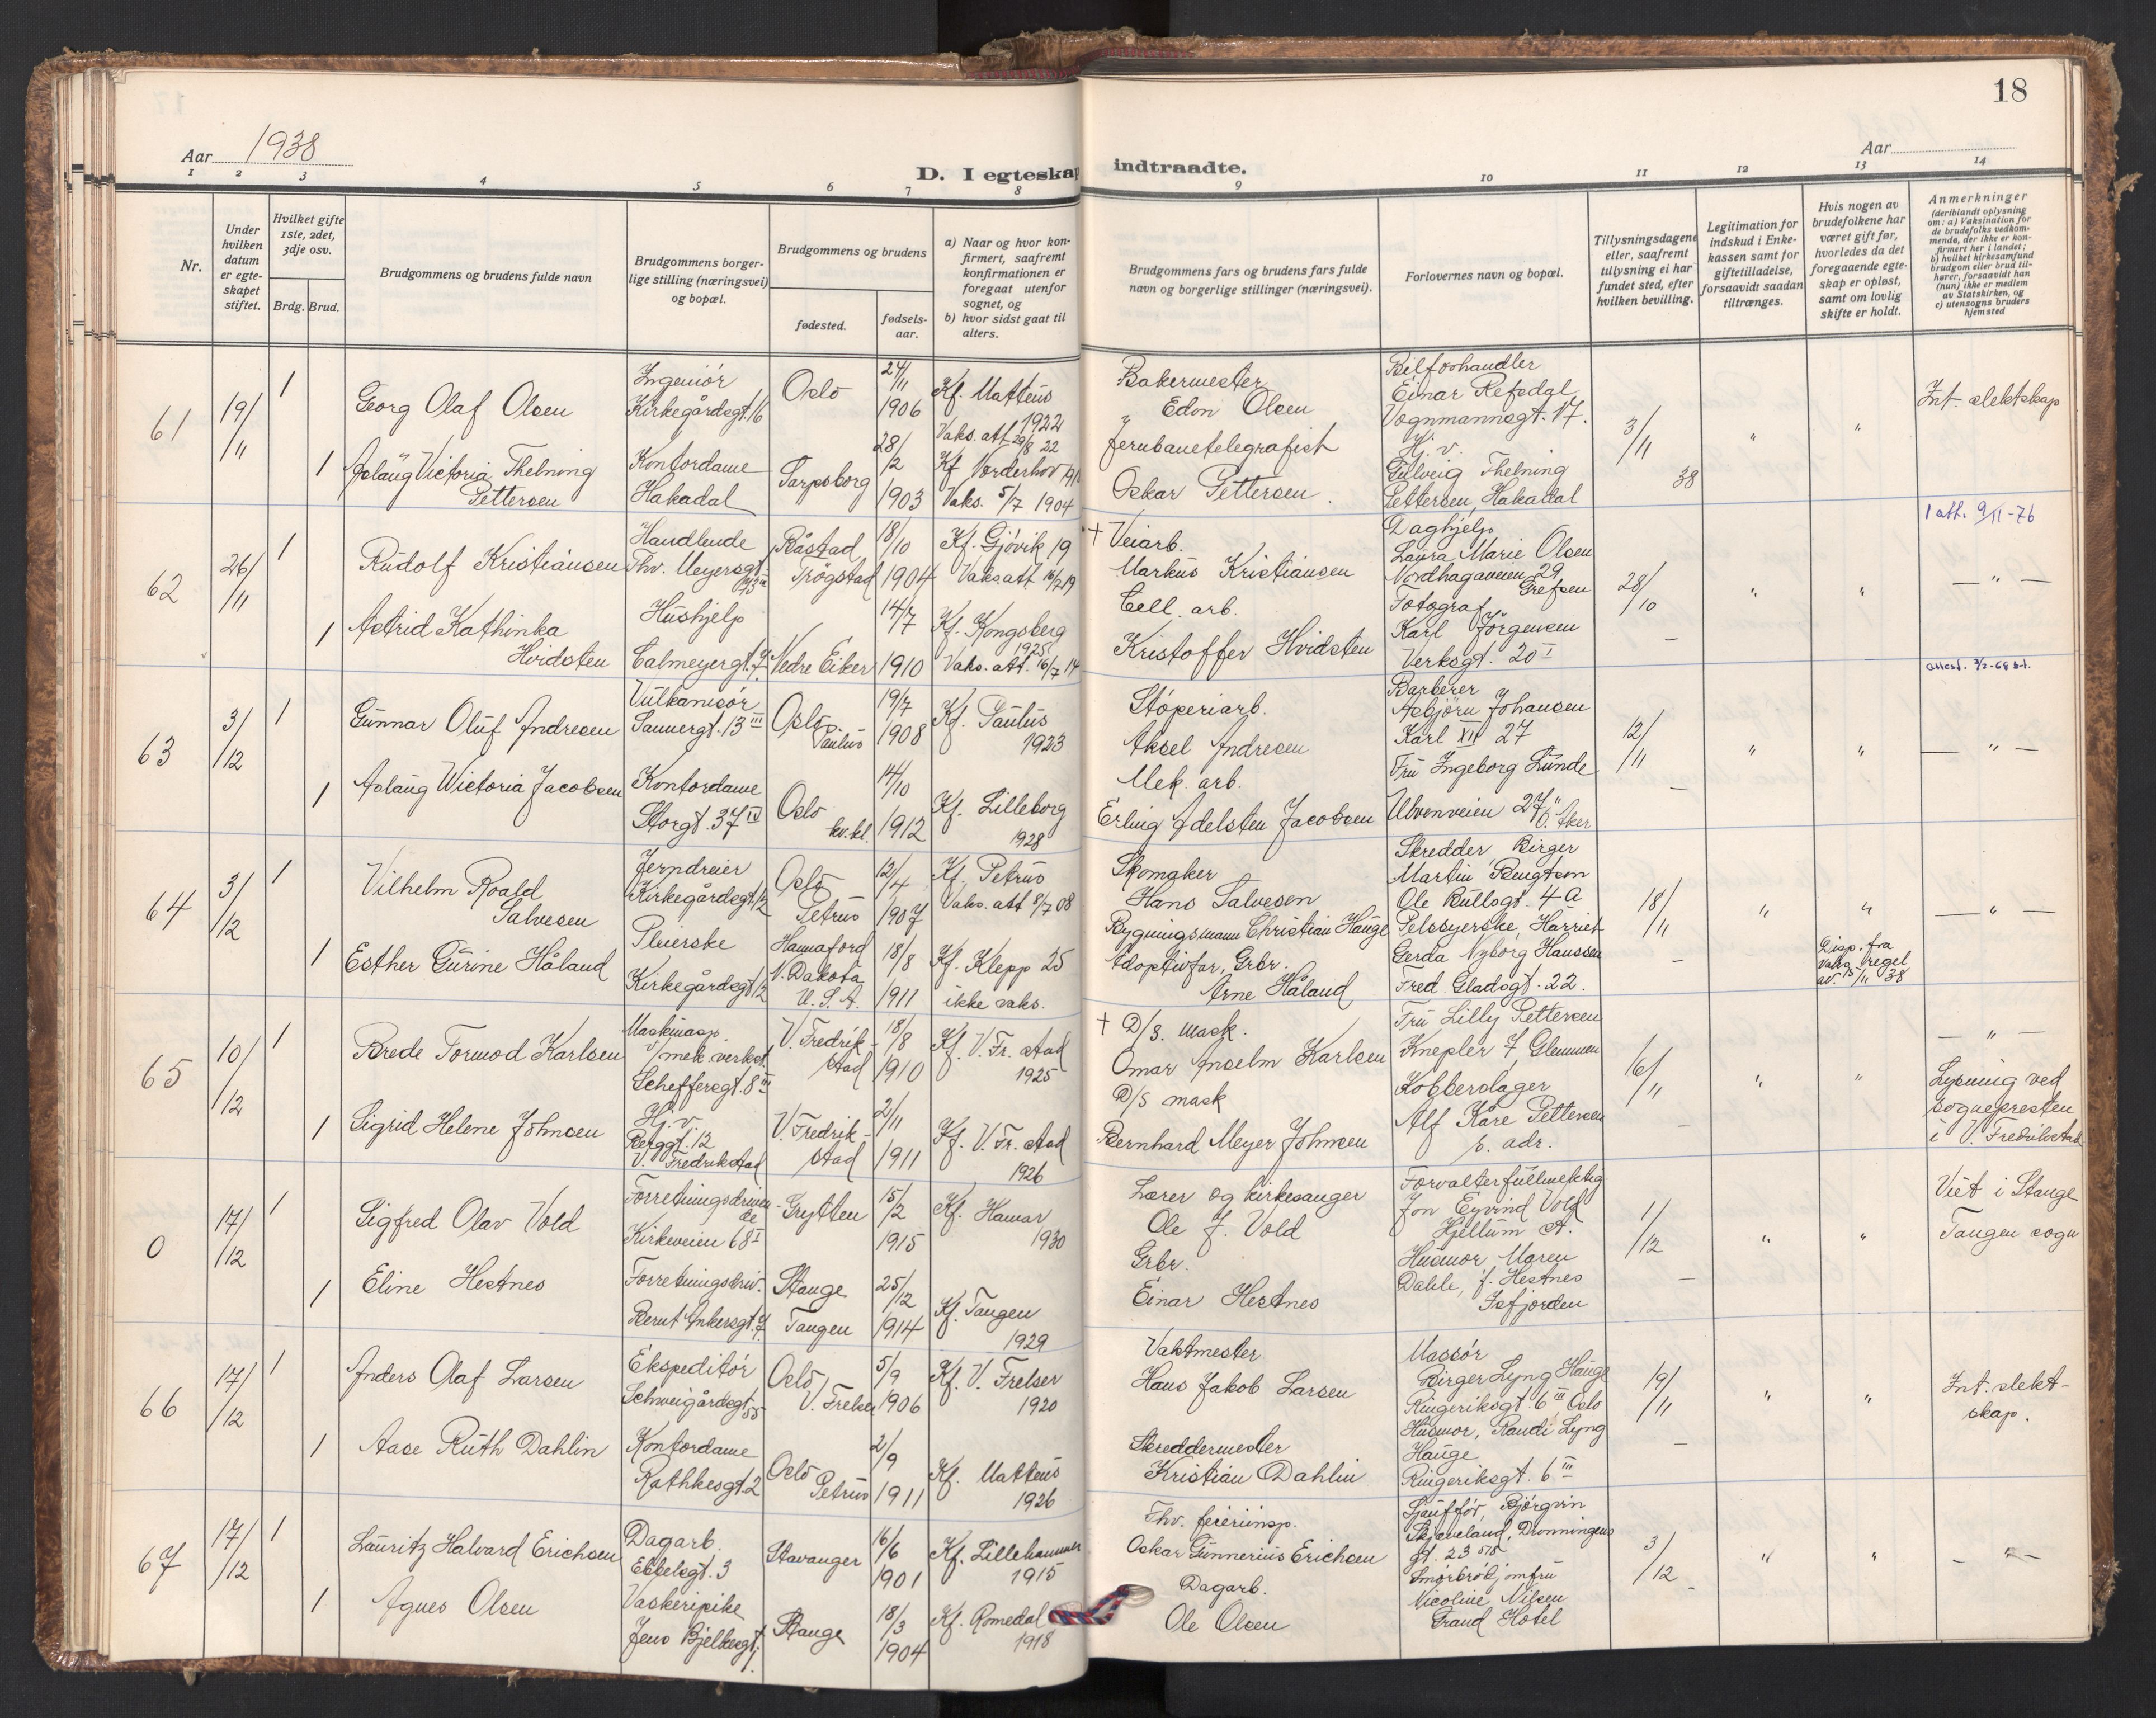 18
Aar 1938
D. I egteskap indtraadte.
Aar
1 2 3 4 5 6 7 8 9 10 11 12 13 14
Nr.
Under hvilken datum er egteskapet stiftet.
Hvilket gifte 1ste, 2det, 3dje osv.
Brdg. Brud.
Brudgommens og brudens fulde navn
Brudgommens borgerlige stilling (næringsvei) og bopæl.
Brudgommens og brudens
fødested.
fødselsaar.
a) Naar og hvor konfirmert, saafremt konfirmationen er foregaat utenfor sognet, og
b) hvor sidst gaat til alters.
Brudgommens fars og brudens fars fulde navn og borgerlige stillinger (næringsvei).
Forlovernes navn og bopæl.
Tillysningsdagene eller, saafremt tillysning ei har fundet sted, efter hvilken bevilling.
Legitimation for indskud i Enkekassen samt for giftetilladelse, forsaavidt saadan tiltrænges.
Hvis nogen av brudefolkene har været gift før, hvorledes da det foregaaende egteskap er opløst, samt om lovlig skifte er holdt.
Anmerkninger
(deriblandt oplysning om: a) Vaksination for de brudefolks vedkommende, der ikke er konfirmert her i landet; b) hvilket kirkesamfund brudgom eller brud tilhører, forsaavidt han (hun) ikke er medlem av Statskirken, og c) utensogns bruders hjemsted
61
19/11
1
Georg Olaf Olsen
Ingeniør
Kirkegårdsgt. 16
Oslo
24/11
1906
Kf. Mattëus
1922
Vaks. att 29/8 22
Bakermester
Edon Olsen
Bilforhandler
Einar Refsdal
Vognmannsgt. 17.
3/11 38
"
"
Int. slektskap
1
Aslaug Victoria Thelning
Pettersen
Kontordame
Hakadal
Sarpsborg
28/2
1903
Kf Norderhov
Vaks. 5/7 1904
Jernbanetelegrafist
Oskar Pettersen
Hj. v.
Thelning
Pettersen, Hakadal
1 att. 9/11-76
62
26/11
1
Rudolf Kristiansen
Handlende
Thv. Meyersgt.
Båstad
Trøgstad
18/10
1904
Kf. Gjøvik 19
Vaks att 16/7 19
† Veiarb.
Markus Kristiansen
Daghjelp
Laura Marie Olsen
Nordhagaveien 29
Grefsen
28/10
"
"
— " —
1
Astrid Kathinka
Hvidsten
Hushjelp
Calmeyergt. 7
Nedre Eiker
14/7
1910
Kf. Kongsberg
1925
Vaks. att. 16/7 14
Cell. arb.
Kristoffer Hvidsten
Fotograf
Karl Jörgensen
Verksgt. 20 I
63
3/12
1
Gunnar Oluf Andresen
Vulkanisør
Sannergt. 13 III
Oslo
Paulus
19/7
1908
Kf. Paulus
1923
Støperiarb.
Aksel Andresen
Barberer
Asbjørn Johansen
Karl XII 27
12/11
"
"
— " —
1
Aslaug Wictoria Jacobsen
Kontordame
Storgt. 37 IV
Oslo
kv.kl.
14/10
1912
Kf. Lilleborg
1928
Mek. arb.
Erling Adelsten Jacobsen
Fru Ingeborg Lunde
Ulvenveien 27, Ö. Aker
64
3/12
1
Vilhelm Roald
Salvesen
Jerndreier
Kirkegårdsgt. 12
Oslo
Petrus
12/4
1907
Kf. Petrus
Vaks. att 8/7 08
Skomaker
Hans Salvesen
Skredder, Birger
Martin Bengtson
Ole Bullsgt. 4 a
18/11
"
"
— " —
1
Esther Gurine Håland
Pleierske
Kirkegårdsgt. 12
Hannaford
N. Dakota
U. S. A.
18/8
1911
Kf. Klepp 25
ikke vaks.
Bygningsmann Christian Hauge
Adoptivfar, Grbr.
Arne Håland
Pelssyerske, Harriet
Gerda Nyborg Hanssen
Fred. Gladsgt. 22.
Disp. fra
vaks. regel
av. 15/11 38
65
10/12
1
Brede Tormod Karlsen
Maskinasp.
v/ mek. verkst.
Scheffersgt. 8 III
V. Fredrikstad
18/8
1910
Kf. V. Fr. stad
1925
† D/S. mask.
Omar Anselm Karlsen
Fru Lilly Pettersen
Knepler 7 Glemmen
16/11
"
"
— " —
Lysning ved
sognepresten
i V. Fredrikstad
1
Sigrid Helene Johnsen
Hj. v.
Berggt. 12
V. Fredrikstad
V. Fredrikstad
2/11
1911
Kf. V. Fr. stad
1926
D/S mask
Bernhard Meyer Johnsen
Kobberslager
Alf Kåre Pettersen
s. adr.
0
17/12
1
Sigfred Olav Vold
Forretningsdrivende
Kirkeveien 68 I
Grytten
15/2
1915
Kf. Hamar
1930
Lærer og kirkesanger
Ole J. Vold
Forvalterfullmektig
Jon Eyvind Vold
Hjellum st.
1/12
"
"
Viet i Stange
Tangen sogn
1
Eline Hestnes
Forretningsdriv.
Bernt Ankersgt. 7
Stange
Tangen
25/12
1914
Kf. Tangen
1929
Grbr.
Einar Hestnes
Husmor Maren
Dahle, f. Hestnes
Isfjorden
66
17/12
1
Anders Olaf Larsen
Ekspeditör
Schweigårdsgt. 55
Oslo
V. Frelser
5/9
1906
Kf. V. Frelser
1920
Vaktmester
Hans Jakob Larsen
Massör
Birger Lyng Hauge
Ringeriksgt. 6 III Oslo
19/11
"
"
Int. slekt-
skap.
1
Aase Ruth Dahlin
Kontordame
Rathkesgt. 2
Oslo
Petrus
2/9
1911
Kf. Mattëus
1926
Skreddermester
Kristian Dahlin
Husmor, Randi Lyng
Hauge
Ringeriksgt. 6 III
67
17/12
1
Lauritz Halvard Erichsen
Dagarb.
Ebbelsgt. 3
Stavanger
16/6
1901
Kf. Lillehammer
1915
Thv. feierinsp.
Oskar Gunnerius Erichsen
Sjaufför, Björgvin
Skjæveland, Dronningens
gt. 23
3/12
"
"
— " —
1
Agnes Olsen
Vaskeripike
Jens Bjelkesgt.
Stange
18/3
1904
Kf. Romedal
1918
Dagarb.
Ole Olsen
Smørbrödjomfru
Nicoline Nilsen
Grand Hotel